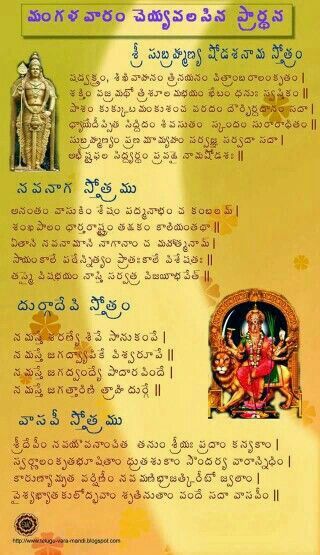 మంగళవారం చెయ్యవలసిన ప్రార్థన
శ్రీ సుబ్రహ్మణ్య షోడశనామ స్తోత్రం
షడ్వక్త్రం, శిఖివాహనం త్రినయనం చిత్రాంబరాలంకృతం |
శక్తిం వజ్రమథో త్రిశూలమభయం ఖేటం ధనుః స్వస్తికం |
పాశం కుక్కుటమంకుశంచ వరదం దౌర్భిర్దదానం సదా |
ధ్యాయేదీప్సిత సిద్ధిదం శివసుతం స్కందం సురారాధితం ||
సుబ్రహ్మణ్యం ప్రణమామ్యహం సర్వజ్ఞ సర్వదా సదా |
అభీష్టఫల సిద్ధ్యర్థం ప్రవక్ష్యే నామషోడశః ||
నవనాగ స్తోత్రము
అనంతం వాసుకిం శేషం పద్మనాభం చ కంబలమ్ |
శంఖపాలం ధార్తరాష్ట్రం తక్షకం కాలియంతథా ||
ఏతాని నవనామాని నాగానాం చ మహాత్మనామ్ |
సాయంకాలే పఠేన్నిత్యం ప్రాతఃకాలే విశేషతః ||
తస్మై విషభయం నాస్తి సర్వత్ర విజయీభవేత్ ||
దుర్గాదేవి స్తోత్రం
నమస్తే శరణ్యే శివే సానుకంపే |
నమస్తే జగద్వ్యాపికే విశ్వరూపే ||
నమస్తే జగద్వంద్యే పాదారవిందే |
నమస్తే జగత్తారిణి త్రాహి దుర్గే ||
వాసవీ స్తోత్రము
శ్రీదేవీం నవయౌవనాంచిత తనుం శ్రీయః ప్రదాం కన్యకాం |
స్వర్ణాలంకృతభూషితాం ధృతశుకాం సౌందర్య వారాన్నిధిం |
కారుణ్యామృత వర్షిణీం నవమణీభ్రాజత్కిరీటో జ్వలాం |
వైశ్యభ్యాతకురోద్భవాం శృతినుతాం వందే సదా వాసవీం ||
http://www.telugu-vara-mandi.blogspot.com